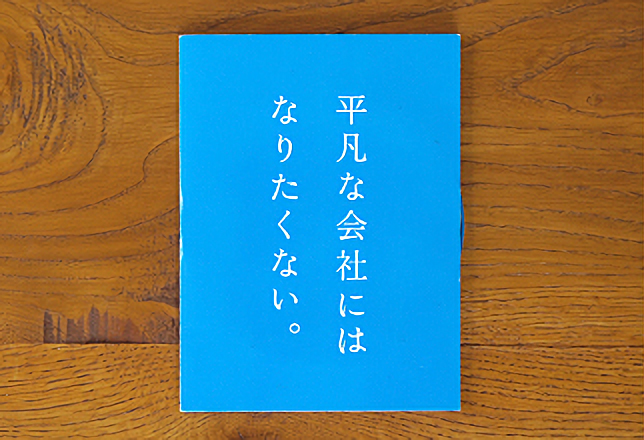 平凡な会社には
なりたくない。